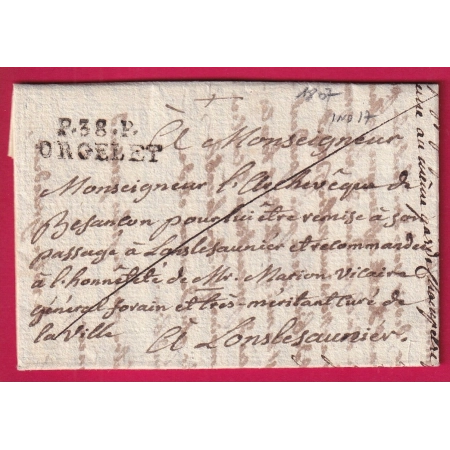 1807
IND 17
P.38.P.
ORGELET
A Monseigneur
Monseigneur l'Archevêque de
Besançon pour lui être remise à son
passage à Lonslesaunier et recommandée
à l'honnêteté de Mr. Marion Vicaire
général forain et très-méritant curé de
la Ville
A Lonslesaunier.